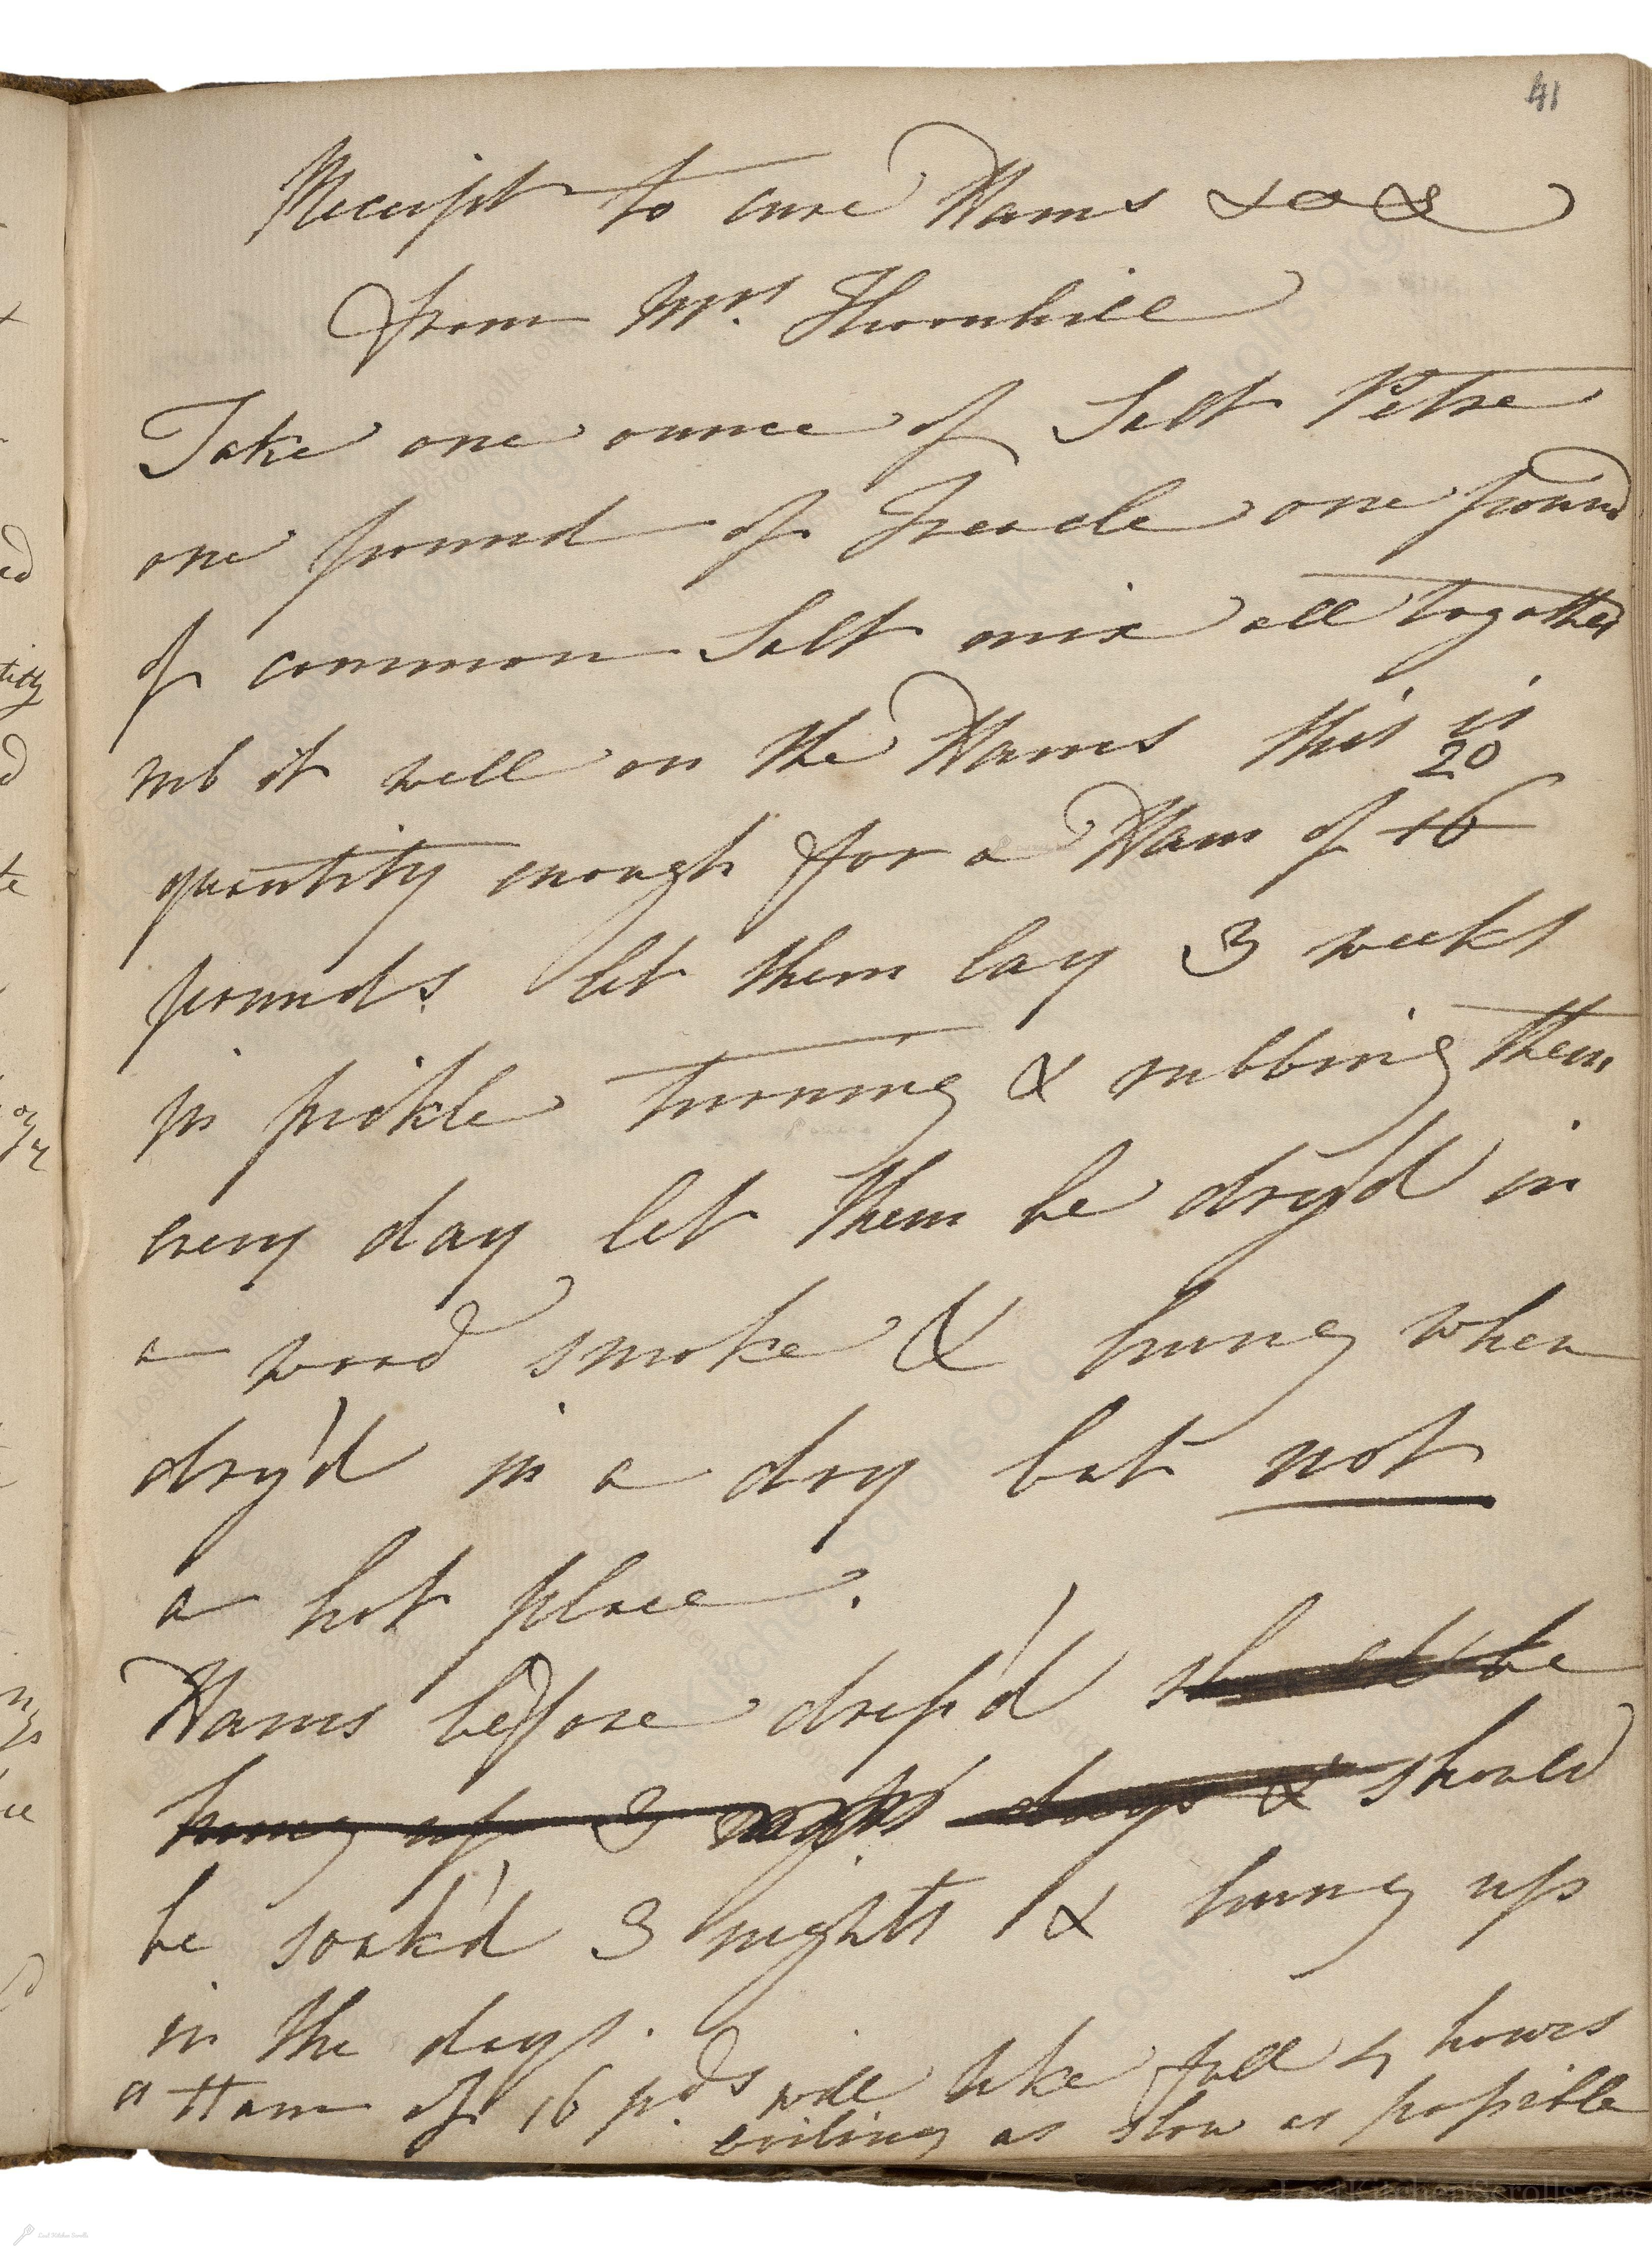 41
Receipt to cure Hams &c &c
from Mrs. Thornhill
Take one ounce of Salt Petre
one pound of Treacle one pound
of common Salt mix all together
rub it well on the Hams this is
20
quantity enough for a Ham of 16
pounds. let them lay 3 weeks
in pickle turning & rubbing them
every day let them be dry'd in
a wood smoke & hung when
dry'd in a dry but not
a hot place.
Hams before dress'd should be
hung up 3 nights days & should
be soak'd 3 nights & hung up
in the days.
a Ham of 16 pds. will take full 4 hours
boiling as slow as possible
LostKitchenScrolls.org
Lost Kitchen Scrolls